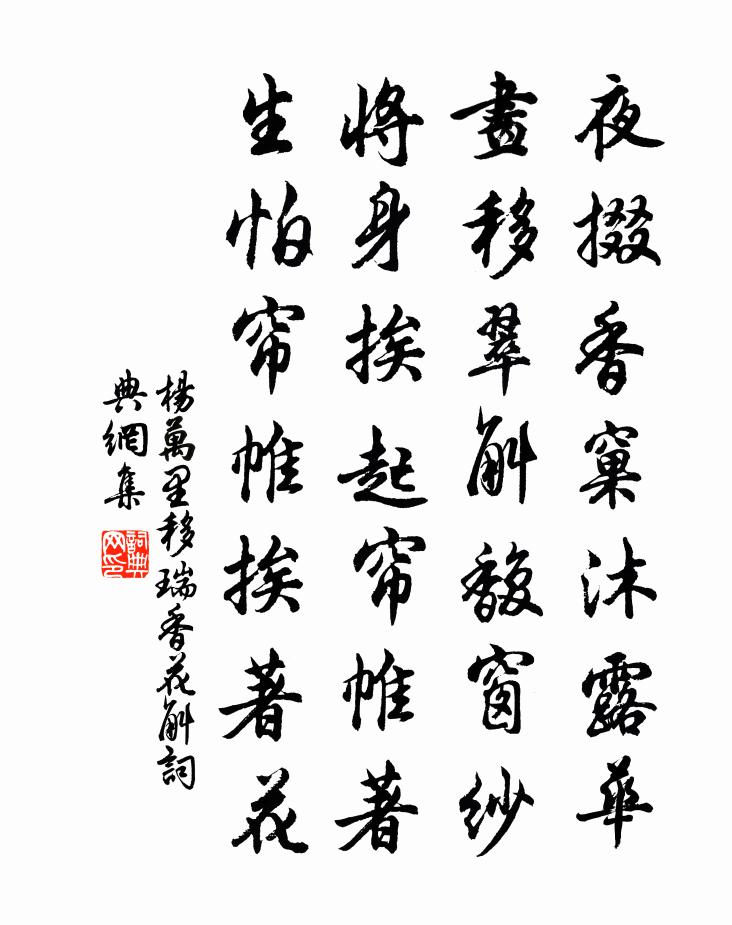 夜掇香窠沐露華
晝移翠斛馥窗紗
將身挨起帘帷著
生怕帘帷挨著花
楊萬里移瑞香花斛詞
典網集
詞典
网印